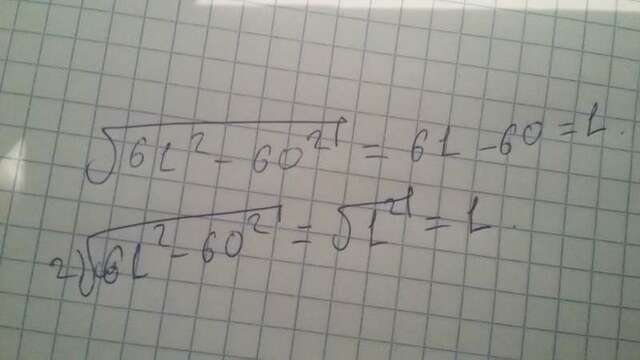 √(61² - 60²) = 61 - 60 = 1.
2) √(61² - 60²) = √(1²) = 1.